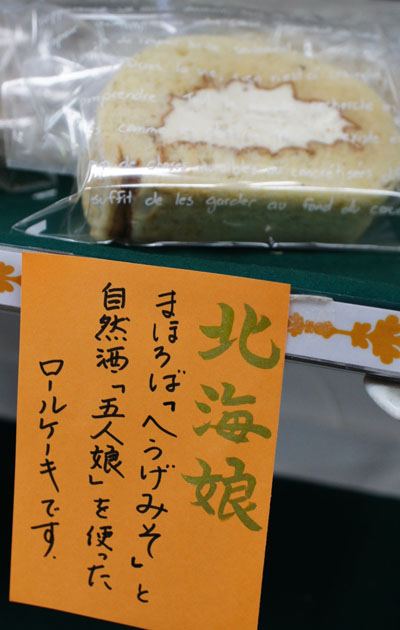 comprendre
suffit de les garder au fond du
北海娘
まほろば「へうげみそ」と
自然酒「五人娘」を使った
ロールケーキです.